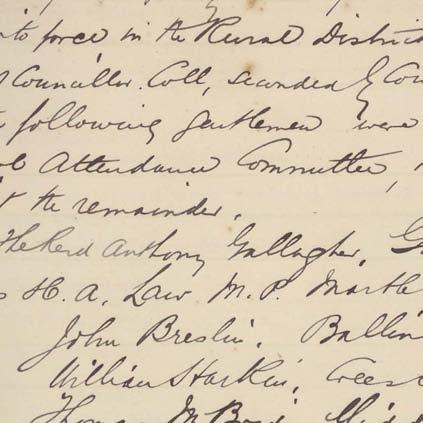 into force in the Rural District
Councillor Coll, seconded by Cou
following gentlemen were
Attendance Committee,
the remainder.
The Revd Anthony Gallagher, G
H. A. Law M.P. Marble
John Breslin, Ballin
William Harkin, Crees